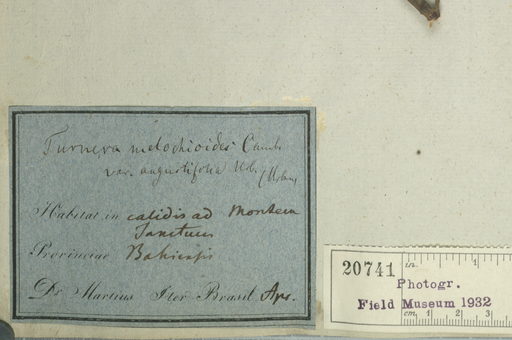 Turnera melochioides Camb.
var. angustifolia Urb.
(Urban)
Habitat in calidis ad Montem
Sanctum
Provinciae Bahiensis
Dr Martius Iter Brasil. Apr.
20741
in. 1
Photogr.
Field Museum 1932
cm. 1 2 3